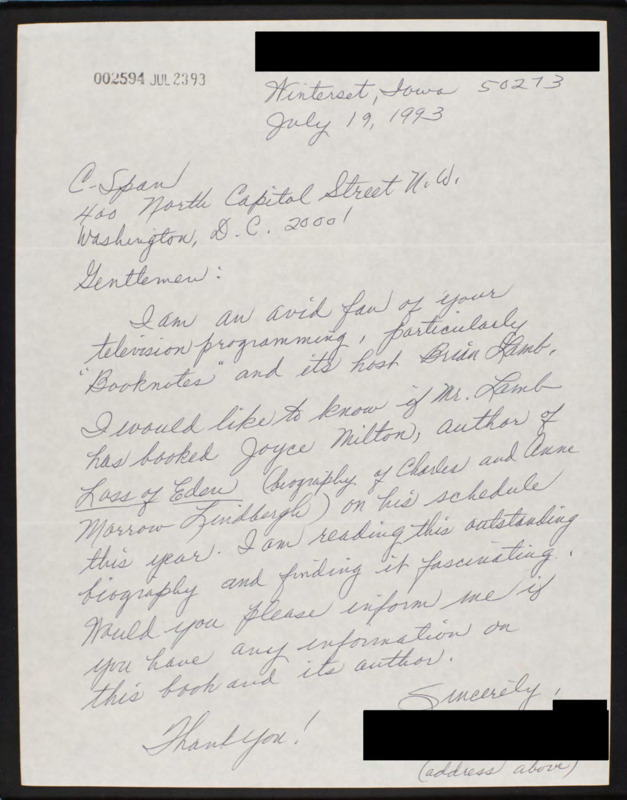 002594 JUL 23 93
Winterset, Iowa 50273
July 19, 1993
C-Span
400 North Capitol Street N.W.
Washington, D.C. 20001
Gentlemen:
I am an avid fan of your
television programming, particularly
"Booknotes" and its host Brian Lamb.
I would like to know if Mr. Lamb
has booked Joyce Milton, author of
Loss of Eden (biography of Charles and Anne
Morrow Lindbergh) on his schedule
this year. I am reading this outstanding
biography and finding it fascinating.
Would you please inform me if
you have any information on
this book and its author.
Sincerely,
Thank you!
(address above)